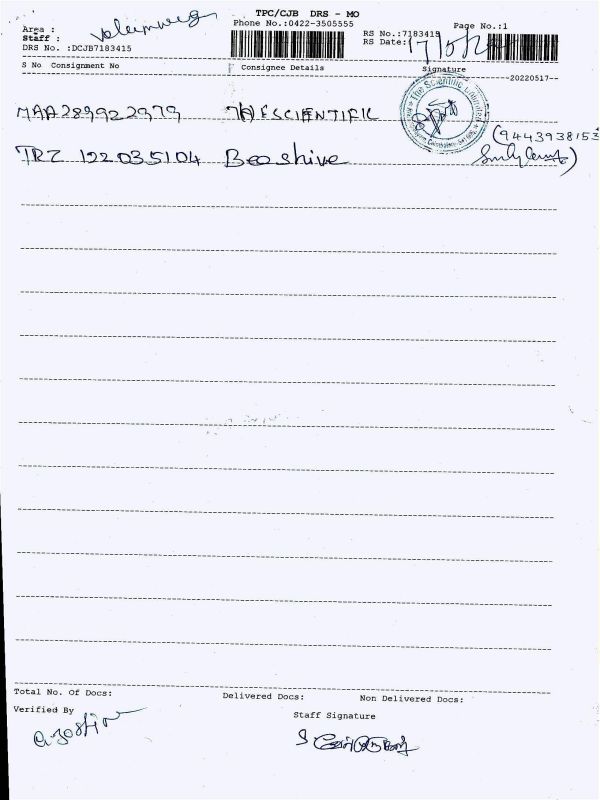 TPC/CJB DRS - MO
Phone No.:0422-3505555
Page No.:1
Area :
Staff :
DRS No. :DCJB7183415
RS No.:7183415
RS Date:
S No Consignment No Consignee Details Signature
--20220517--
MAA289922979 THESCIENTIFIC
The Scientific
(9443938153
TRZ 122035104 Beeshive
Total No. Of Docs: Delivered Docs: Non Delivered Docs:
Verified By
Staff Signature